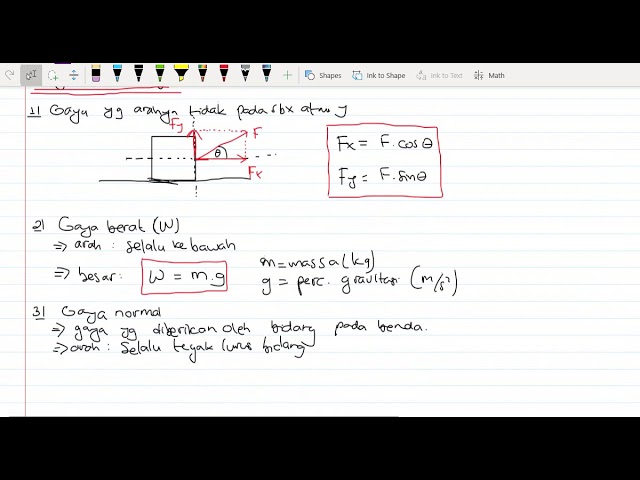 Shapes
Ink to Shape
Ink to Text
Math
1) Gaya yg arahnya tidak pada sbx atau y
Fy
F
θ
Fx
Fx = F.cosθ
Fy = F.sinθ
2) Gaya berat (W)
⇒ arah : selalu ke bawah
⇒ besar : W = m.g
m = massa (kg)
g = perc. gravitasi (m/s²)
3) Gaya normal
⇒ gaya yg diberikan oleh bidang pada benda.
⇒ arah : selalu tegak lurus bidang